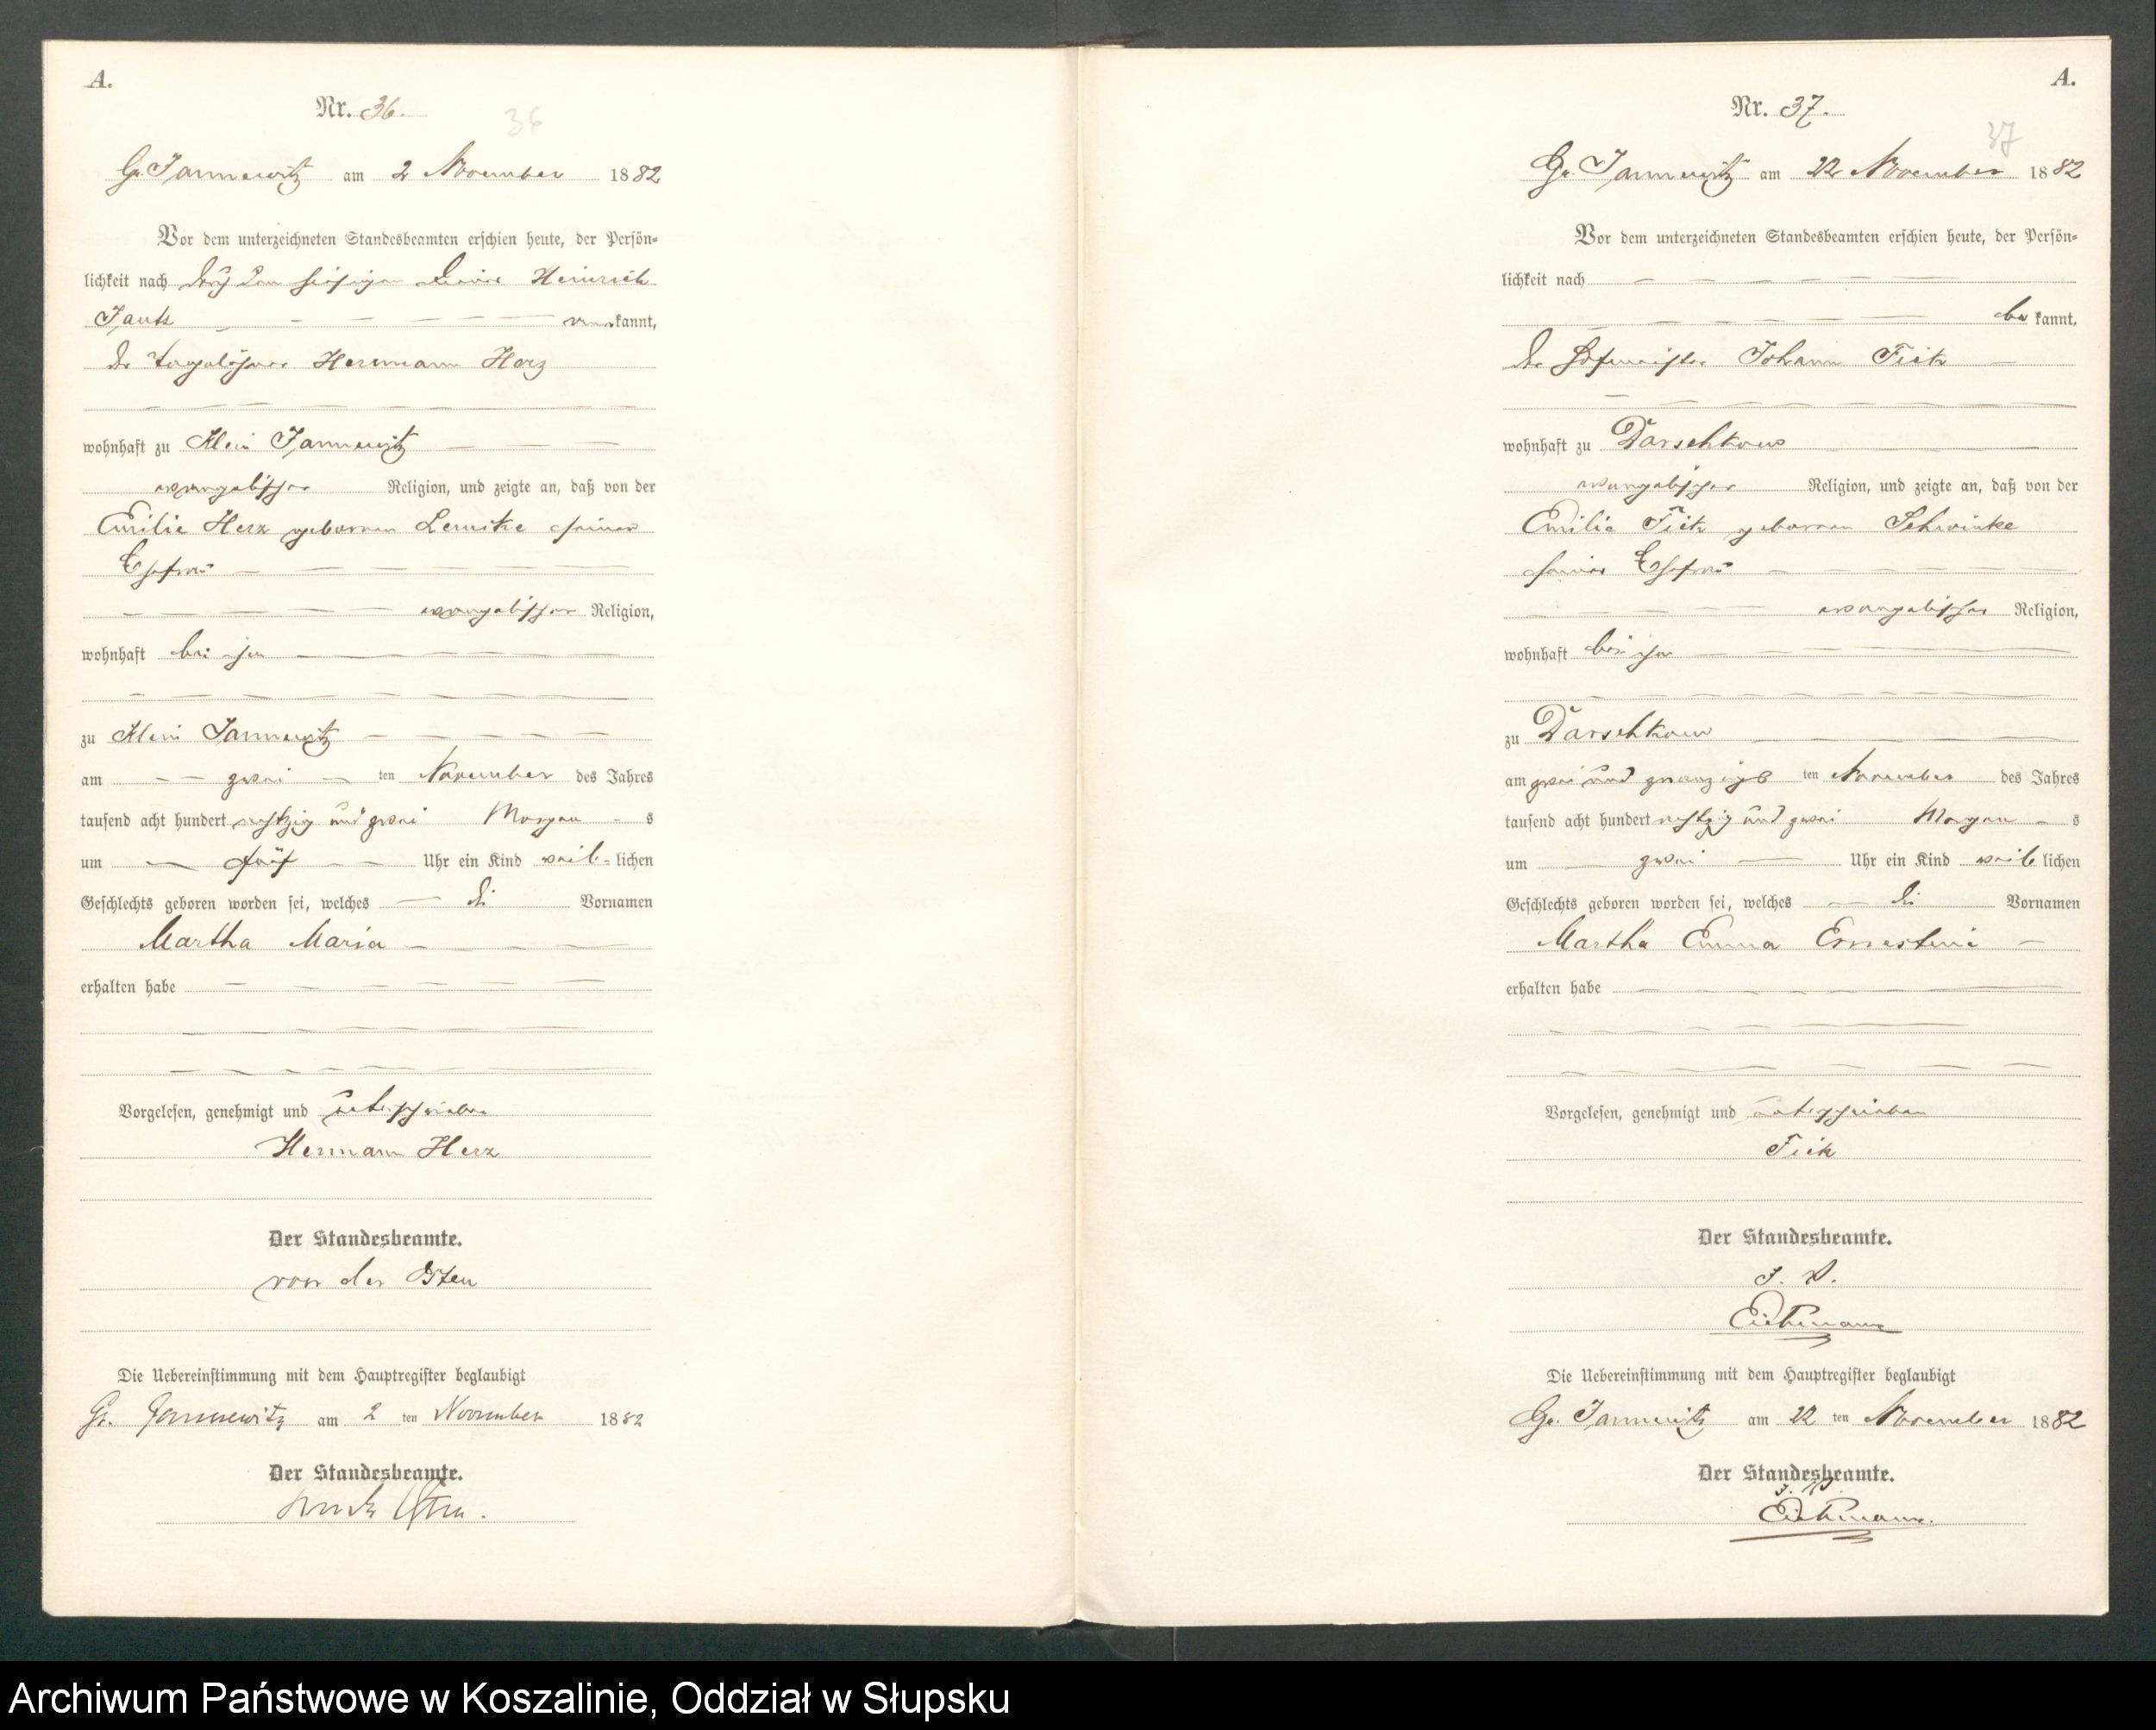 A.
Nr. 36.
36
Gr. Jannewitz am 2 November 1882
Vor dem unterzeichneten Standesbeamten erschien heute, der Persön-
lichkeit nach durch den hiesigen Heinrich
kannt,
der Tagelöhner Hermann Herz
wohnhaft zu Klein Jannewitz
evangelischer Religion, und zeigte an, daß von der
Emilie Herz geborenen Lemcke seiner
Ehefrau
evangelischer Religion,
wohnhaft bei ihm
zu Klein Jannewitz
am zwei ten November des Jahres
tausend acht hundert achtzig und zwei Morgen s
um fünf Uhr ein Kind weib- lichen
Geschlechts geboren worden sei, welches die Vornamen
Martha Maria
erhalten habe
Vorgelesen, genehmigt und unterschrieben
Hermann Herz
Der Standesbeamte.
von der Osten
Die Uebereinstimmung mit dem Hauptregister beglaubigt
Gr. Jannewitz am 2 ten November 1882
Der Standesbeamte.
von der Osten.
A.
Nr. 37.
37
Gr. Jannewitz am 22 November 1882
Vor dem unterzeichneten Standesbeamten erschien heute, der Persön-
lichkeit nach
be kannt,
der Hofmeister Johann Fick
wohnhaft zu Darschkow
evangelischer Religion, und zeigte an, daß von der
Emilie Fick geborenen Schwinke
seiner Ehefrau
evangelischer Religion,
wohnhaft bei ihm
zu Darschkow
am zwei und zwanzigs ten November des Jahres
tausend acht hundert achtzig und zwei Morgen s
um zwei Uhr ein Kind weib lichen
Geschlechts geboren worden sei, welches die Vornamen
Martha Emma Ernestine
erhalten habe
Vorgelesen, genehmigt und unterschrieben
Fick
Der Standesbeamte.
J. V.
Die Uebereinstimmung mit dem Hauptregister beglaubigt
Gr. Jannewitz am 22 ten November 1882
Der Standesbeamte.
J. V.
Archiwum Państwowe w Koszalinie, Oddział w Słupsku